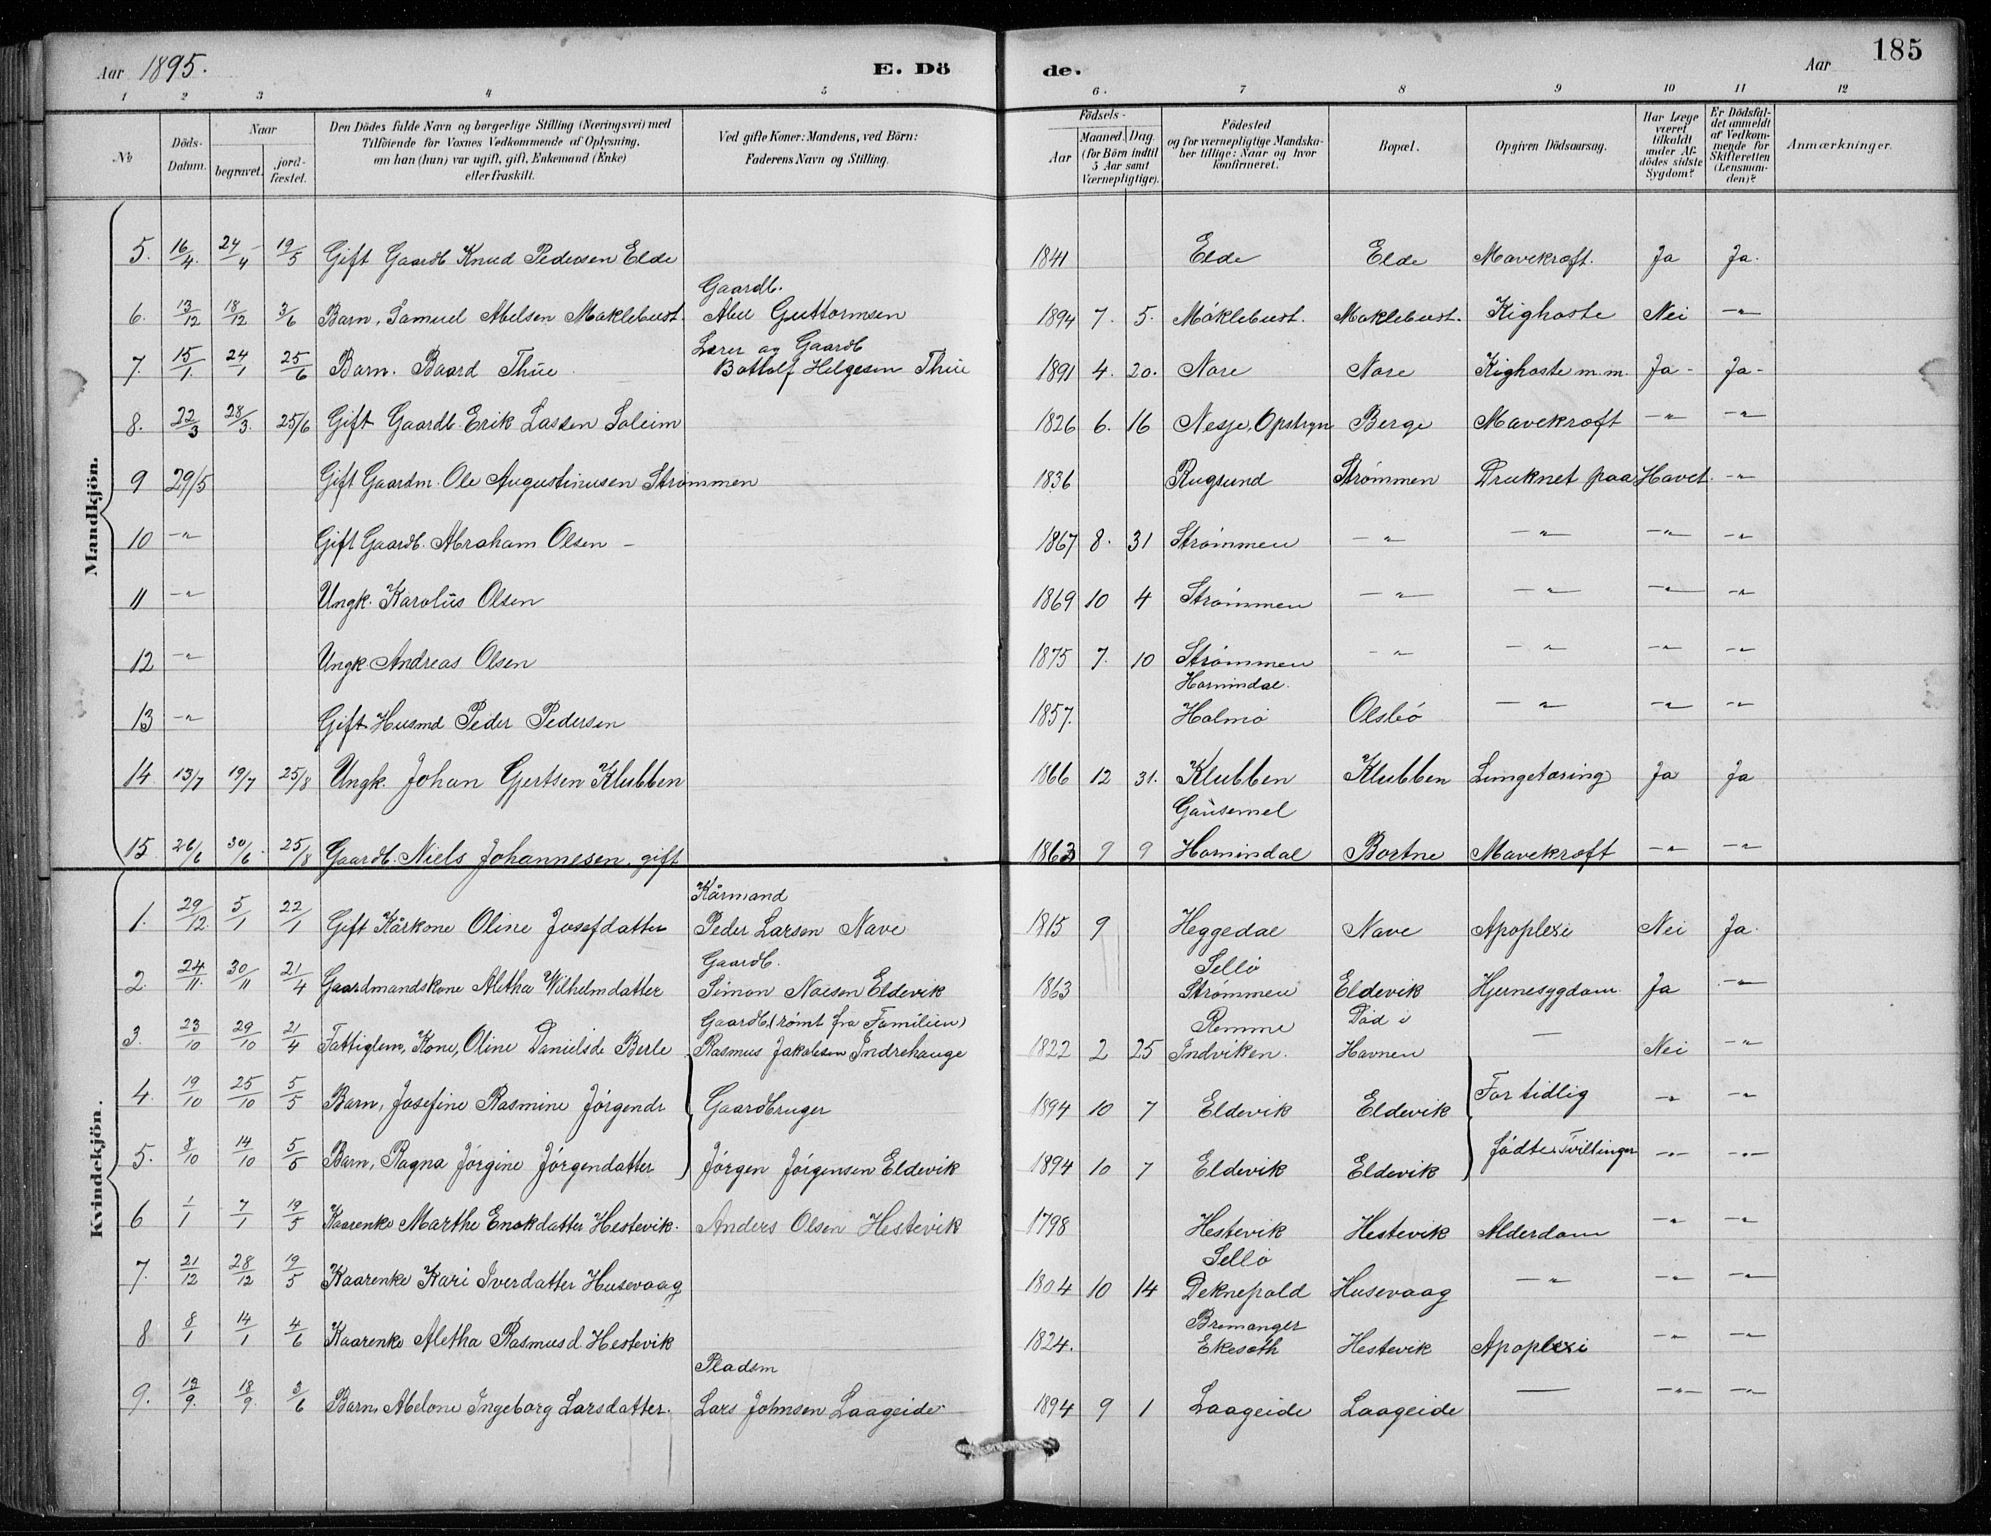 Aar 1895. E. Döde. Aar 185
1 2 3 4 5 6. 7 8 9 10 11 12
No
Döds-Datum.
Naar
begravet.
jord-fæstet.
Den Dödes fulde Navn og borgerlige Stilling (Næringsvei) med
Tilföiende for Voxnes Vedkommende af Oplysning,
om han (hun) var ugift, gift, Enkemand (Enke)
eller fraskilt.
Ved gifte Koner: Mandens, ved Börn:
Faderens Navn og Stilling.
Födsels-
Aar
Maaned. Dag.
(for Börn indtil
5 Aar samt
Værnepligtige).
Födested
og for værnepligtige Mandska-
ber tillige: Naar og hvor
konfirmeret.
Bopæl.
Opgiven Dödsaarsag.
Har Læge
været
tilkaldt
under Af-
dödes sidste
Sygdom?
Er Dödsfal-
det anmeldt
af Vedkom-
mende for
Skifteretten
(Lensman-
den)?
Anmærkninger.
Mandkjön.
5. 16/4. 24/4 19/5 Gift Gaardb Knud Pedersen Elde 1841 Elde Elde Mavekræft. Ja Ja.
Gaardb.
6. 13/12 18/12 3/6 Barn, Samuel Abelsen Maklebust. Abel Guttormsen 1894 7. 5. Maklebust. Maklebust. Kighoste Nei -"-
Lærer og Gaardb
7. 15/1. 24/1 25/6 Barn. Baard Thue Bottolf Helgesen Thue 1891 4. 20. Nore Nore Kighoste m.m. Ja - Ja-
8. 22/3 28/3. 25/6 Gift Gaardb. Erik Lassen Soleim 1826 6. 16 Nesje, Opstryn Berge Mavekræft -"- -"-
9 29/5 Gift Gaardm. Ole Augustinusen Strømmen 1836 Rugsund Strømmen Druknet paa Havet. -"-
10 -"- Gift Gaardb. Abraham Olsen - 1867 8. 31 Strømmen -"- -"- -"- -"-
11 -"- Ungk. Karolus Olsen 1869 10 4 Strømmen -"- -"- -"- -"-
12 -"- Ungk Andreas Olsen 1875 7. 10 Strømmen -"- -"- -"- -"-
Hornindal.
13 -"- Gift Husmd Peder Pedersen 1857. Holmø Olsbø -"- -"- -"-
14 13/7 19/7 25/8 Ungk. Johan Gjertsen Klubben 1866 12 31. Klubben Klubben Lungetæring Ja Ja
Gausemel
15. 26/6 30/6. 25/8 Gaardb. Niels Johannesen, gift 1863 9 9 Hornindal Bortne Mavekræft -"- -"-
Kvindekjön.
Kårmand
1. 29/12. 5/1 22/1 Gift Kårkone Oline Josefdatter Peder Larsen Nave 1815 9 Heggedal Nave Apoplexi Nei Ja.
Gaardb. Sellø
2. 24/11. 30/11 21/4 Gaardmandskone Aletha Wilhelmdatter Simon Noesen Eldevik 1863 Strømmen Eldevik Hjernesygdom. Ja -"-
Gaardb. (rømt fra Familien) Remme Død i
3. 23/10 29/10 21/4 Fattiglem, Kone, Oline Danielsd. Berle Rasmus Jakobsen Indrehauge 1822 2 25 Indviken. Havnen — Nei -"-
4. 19/10 25/10 5/5 Barn, Josefine Rasmine Jørgendr Gaardbruger 1894 10 7 Eldevik Eldevik For tidlig -"- -"-
5. 8/10 14/10 5/5 Barn, Ragna Jørgine Jørgendatter Jørgen Jørgensen Eldevik 1894 10 7 Eldevik Eldevik fødte Tvillinger -"- -"-
6 1/1 7/1 19/5 Kaarenke Marthe Enokdatter Hestevik. Anders Olsen Hestevik 1798 Hestevik Hestevik Alderdom -"- -"-
Sellø
7. 21/12 28/12 19/5 Kaarenke Kari Iverdatter Husevaag 1804 10 14 Deknepold Husevaag -"- -"- -"-
Bremanger
8 8/1 14/1 4/6 Kaarenke Aletha Rasmusd Hestevik 1824. Hestevik Apoplexi -"- -"-
Pladsm
9. 18/9. 3/6 Barn, Abelone Ingeborg Larsdatter. Lars Johnsen Laageide 1894 9 1 Laageide Laageide — -"- -"-